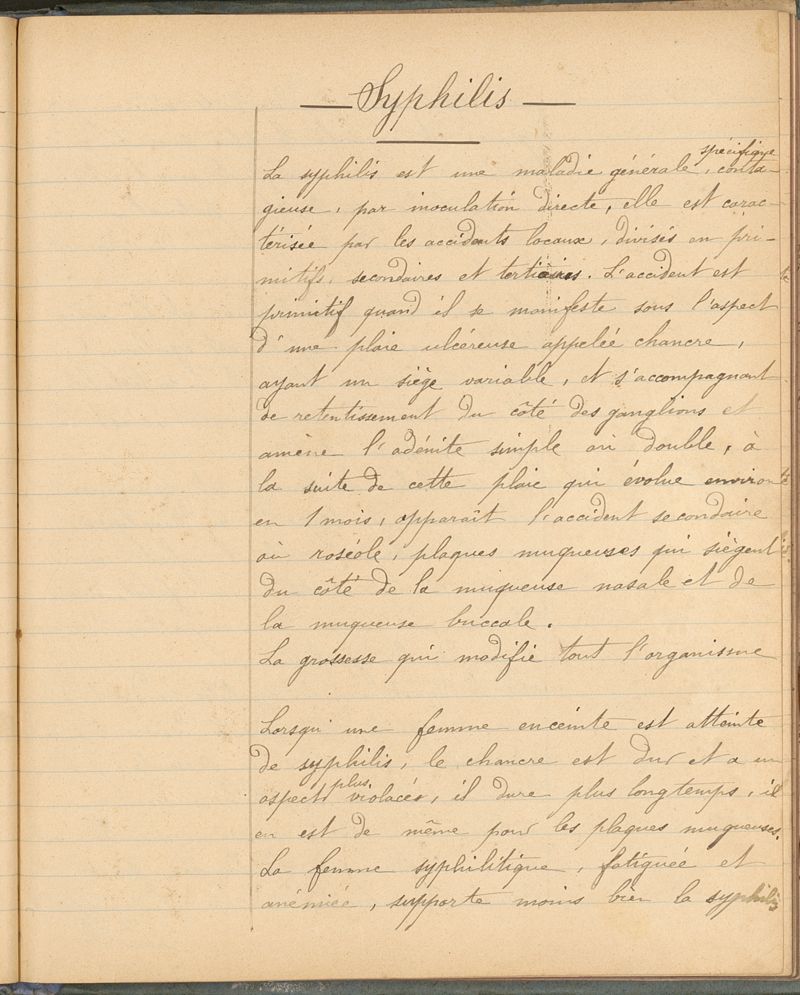 — Syphilis —
La syphilis est une maladie générale, spécifique conta-
gieuse, par inoculation directe, elle est carac-
térisée par les accidents locaux, divisés en pri-
mitifs, secondaires et tertiaires. L'accident est
primitif quand il se manifeste sous l'aspect
d'une plaie ulcéreuse appelée chancre,
ayant un siège variable, et s'accompagnant
de retentissement du côté des ganglions et
amène l'adénite simple ou double, à
la suite de cette plaie qui évolue environ
en 1 mois, apparaît l'accident secondaire
ou roséole, plaques muqueuses qui siègent
du côté de la muqueuse nasale et de
la muqueuse buccale.
La grossesse qui modifie tout l'organisme
Lorsqu'une femme enceinte est atteinte
de syphilis, le chancre est dur et a un
aspect plus violacés, il dure plus longtemps, il
en est de même pour les plaques muqueuses.
La femme syphilitique, fatiguée et
anémiée, supporte moins bien la syphilis